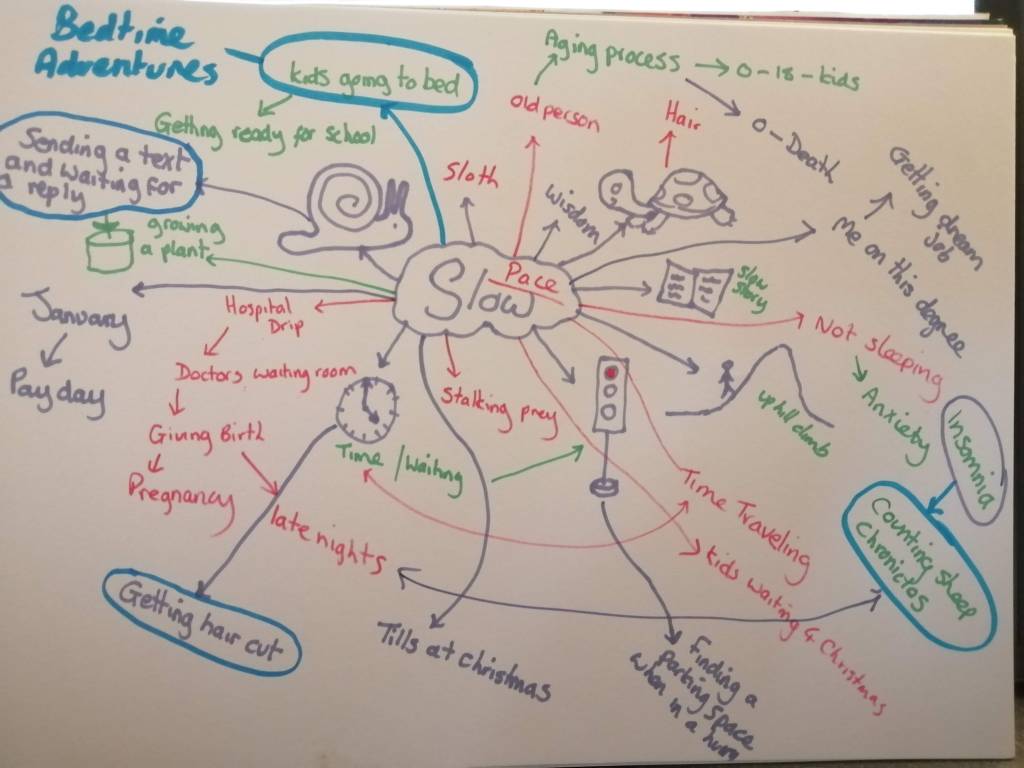 Bedtime
Adventures
kids going to bed
Getting ready for school
Sending a text
and waiting for
a reply
growing
a plant
January
Pay day
Sloth
Old person
Aging process
0-18-kids
0-Death
Hair
Wisdom
Getting dream
job
Me on this degree
Slow
Pace
slow
story
Not sleeping
Anxiety
Insomnia
Counting sheep
Chronicles
up hill climb
Hospital
Drip
Doctors waiting room
Giving Birth
Pregnancy
late nights
Time/Waiting
Stalking prey
Getting hair cut
Tills at christmas
Time Traveling
kids waiting 4 Christmas
Finding a
parking space
when in a hurry